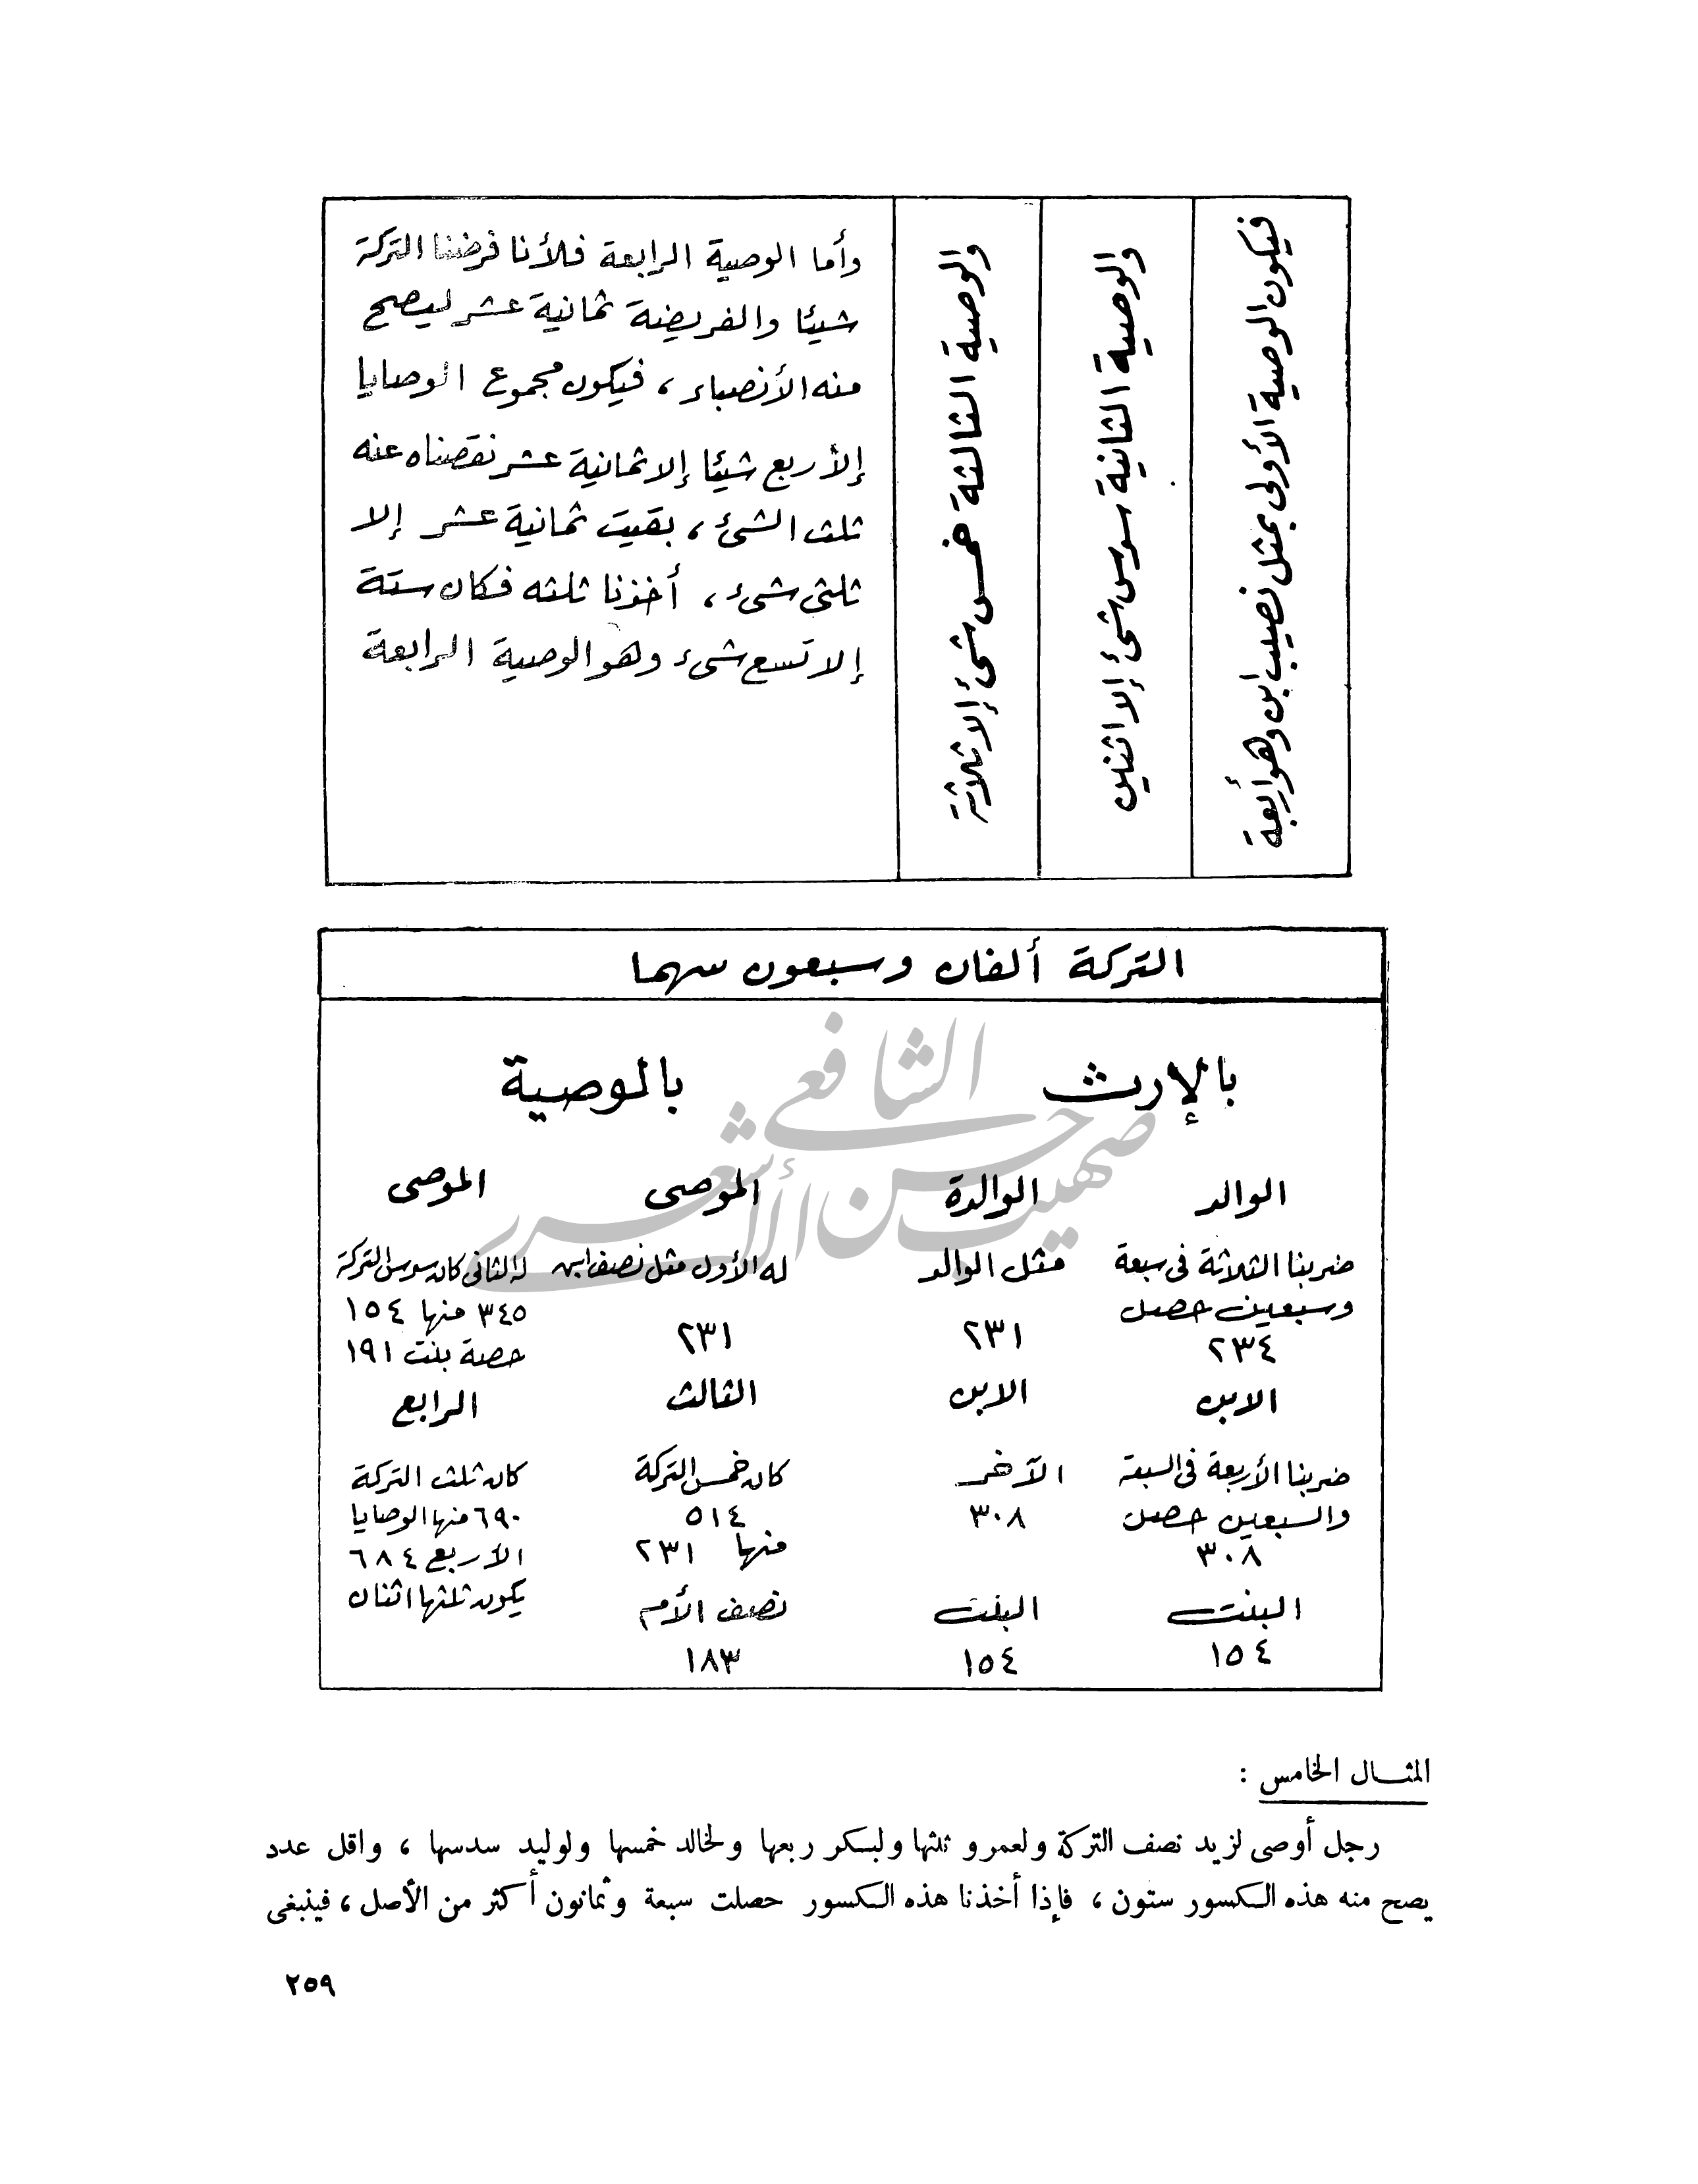 فيكون الوصية الأولى بمثل نصيب ابن وهو أربعة
والوصية الثانية سدس شئ إلا اثنين
والوصية الثالثة خمس شئ إلا ثلاثة
وأما الوصية الرابعة فلأنا فرضنا التركة
شيئا والفريضة ثمانية عشر ليصح
منه الأنصباء ، فيكون مجموع الوصايا
إلأربع شيئا إلا ثمانية عشر نقصناه عنه
ثلث الشئ ، بقيت ثمانية عشر إلا
ثلثى شىء ، أخذنا ثلثه فكان ستة
إلا تسع شىء وهو الوصية الرابعة
التركة ألفان وسبعون سهما
بالإرث بالوصية
الوالد الوالدة الموصى الموصى
ضربنا الثلاثة فى سبعة مثل الوالد له الأول مثل نصف ابن له الثانى كان سدس التركة
وسبعين حصل ٣٤٥ منها ١٥٤
٢٣٤ ٢٣١ ٢٣١ حصة بنت ١٩١
الابن الابن الثالث الرابع
ضربنا الأربعة فى السبعة الآخر كان خمس التركة كان ثلث التركة
والسبعين حصل ٣٠٨ ٥١٤ ٦٩٠ منها الوصايا
٣٠٨ منها ٢٣١ الأربع ٦٨٤
البنت البنت نصف الأم يكون ثلثها اثنان
١٥٤ ١٥٤ ١٨٣
صهيب حسن الشافعي الأشعري
المثال الخامس :
رجل أوصى لزيد نصف التركة ولعمرو ثلثها ولبكر ربعها ولخالد خمسها ولوليد سدسها ، واقل عدد
يصح منه هذه الكسور ستون ، فإذا أخذنا هذه الكسور حصلت سبعة وثمانون أكثر من الأصل ، فينبغى
٢٥٩